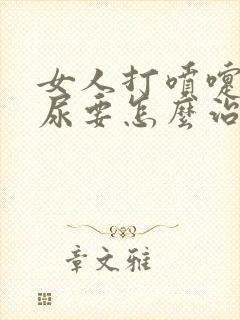 女人打噴嚏
尿要怎麼治
章文雅